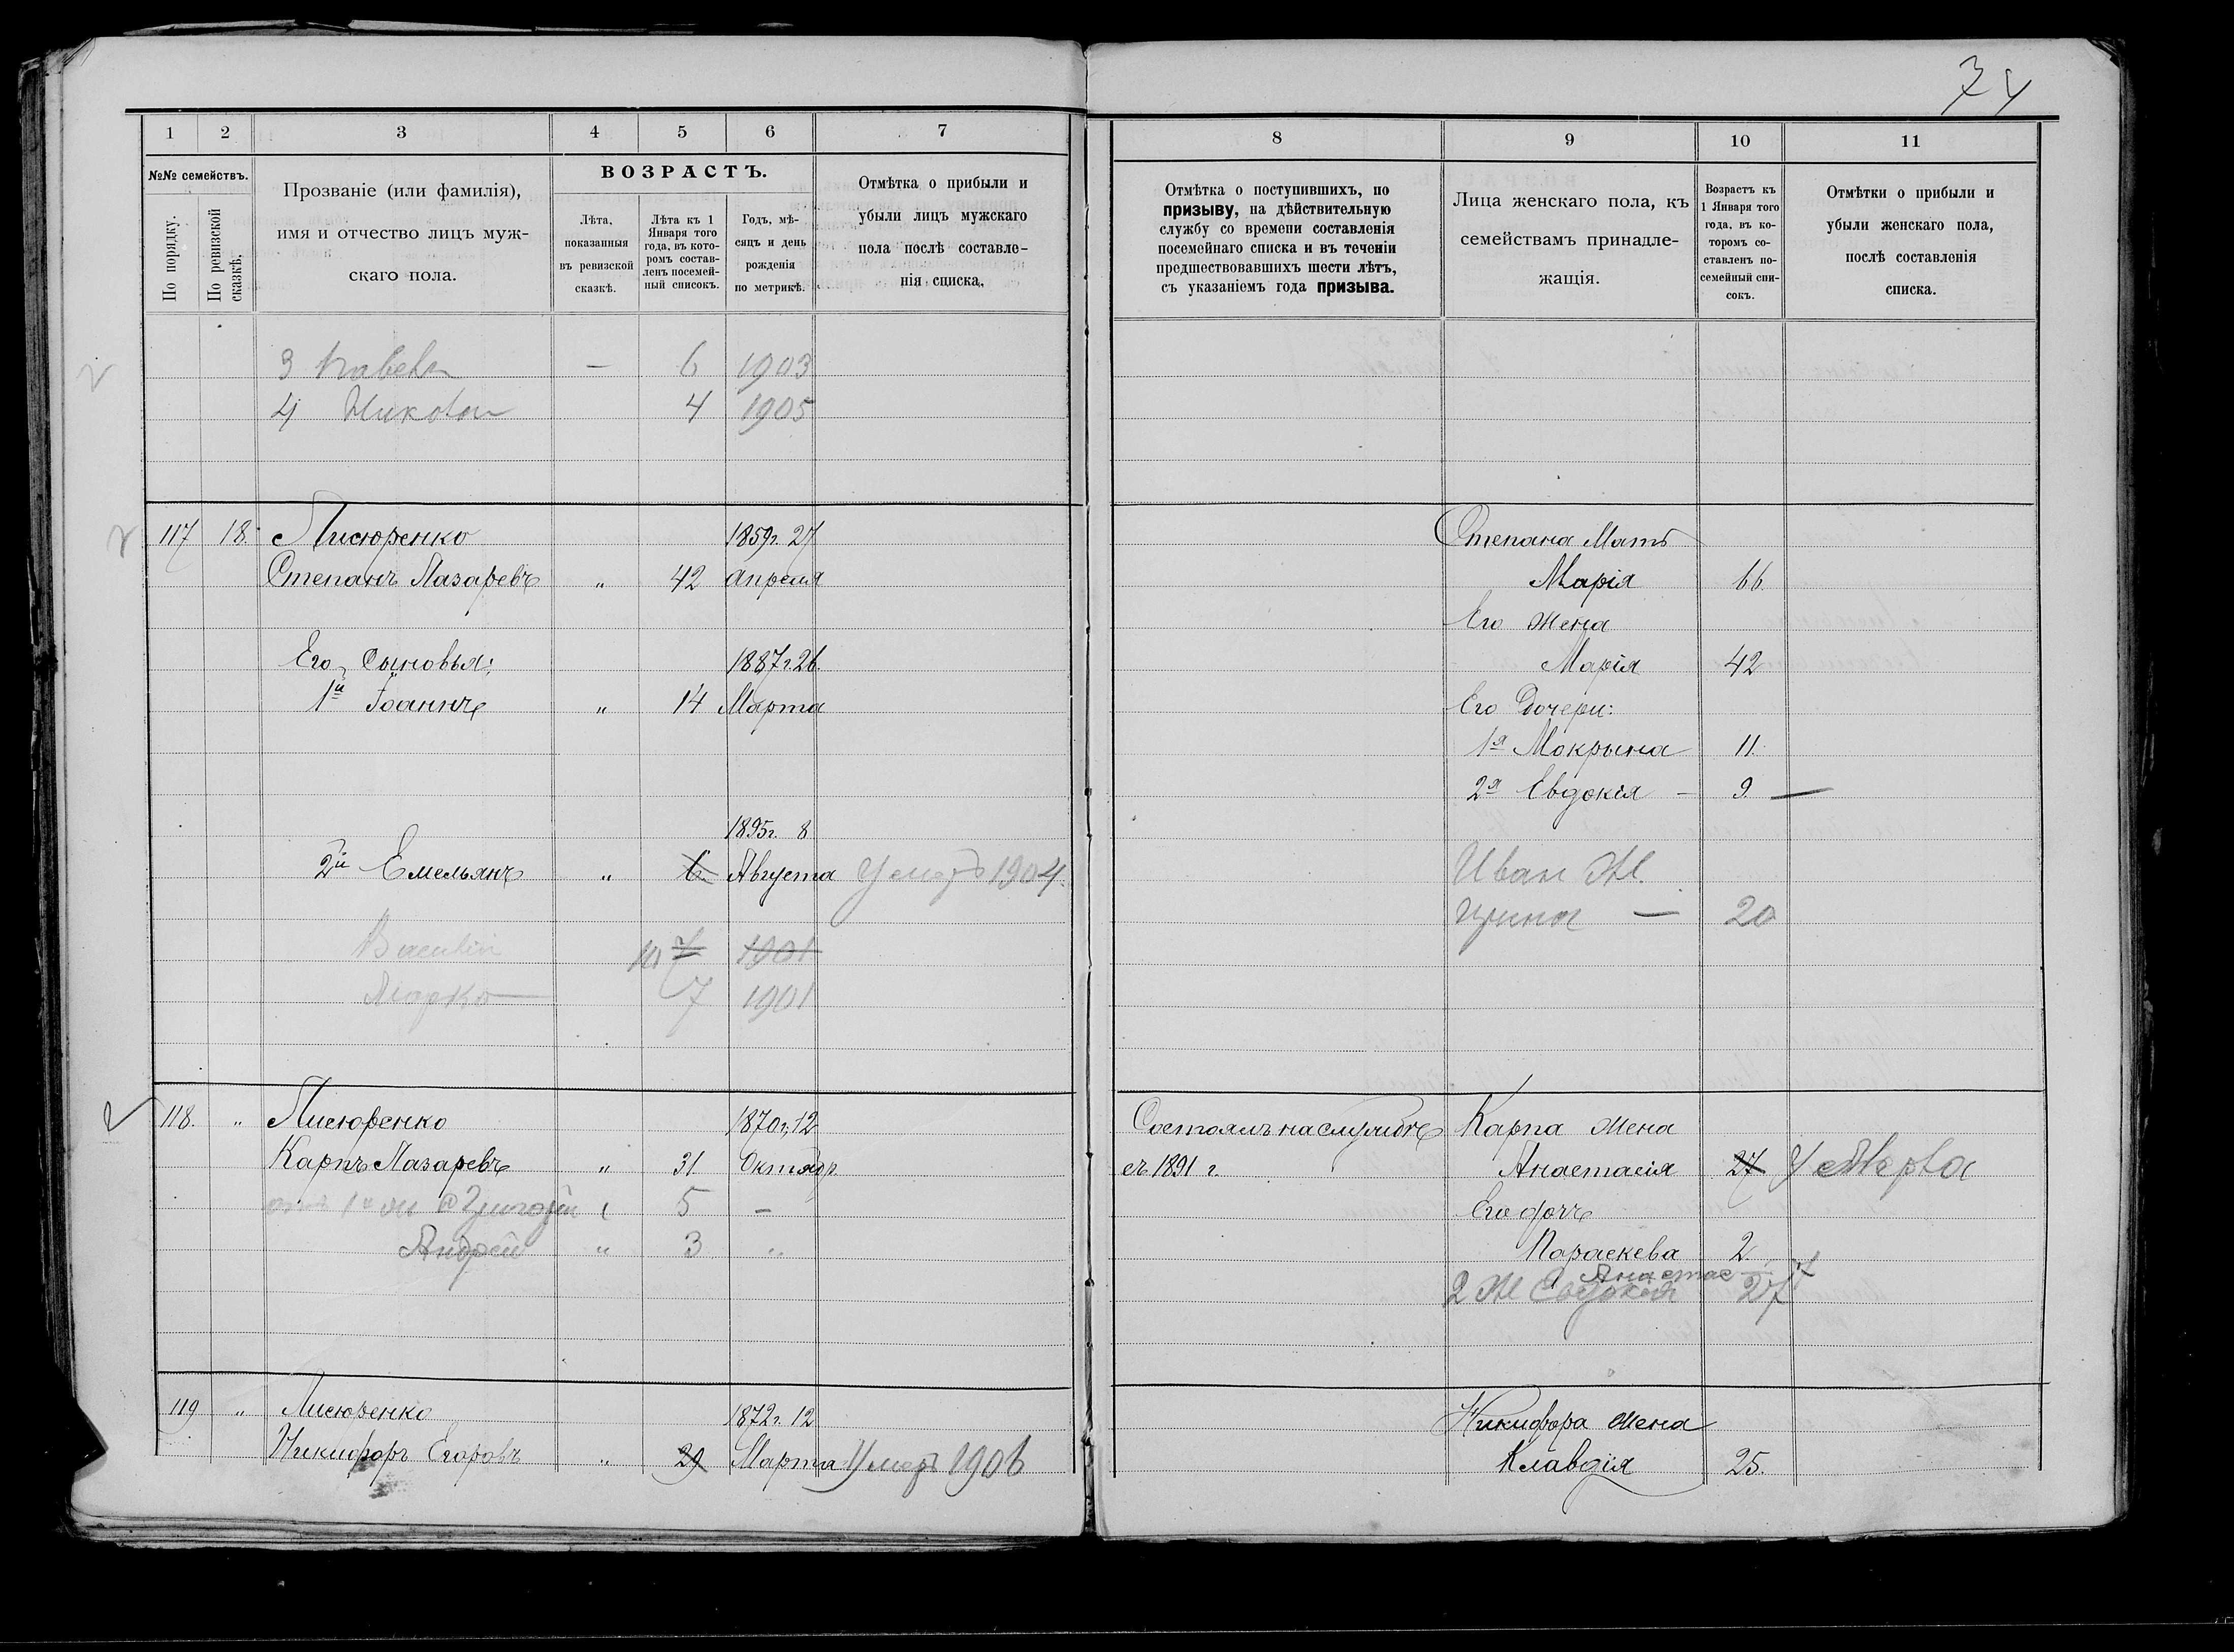 74
1 2 3 4 5 6 7
№№ семействъ.
По порядку.
По ревизской сказкѣ.
Прозваніе (или фамилія),
имя и отчество лицъ муж-
скаго пола.
ВОЗРАСТЪ.
Лѣта,
показанныя
въ ревизской
сказкѣ.
Лѣта къ 1
Января того
года, въ кото-
ромъ состав-
ленъ посемей-
ный списокъ.
Годъ, мѣ-
сяцъ и день
рожденія
по метрикѣ.
Отмѣтка о прибыли и
убыли лицъ мужскаго
пола послѣ составле-
нія списка.
3 Павелъ — 6 1903
4 Николай 4 1905
117 18. Лисюренко 1859г. 27
Степанъ Лазаревъ „ 42 Апреля
Его Сыновья: 1887г. 26.
1й Іоаннъ „ 14 Марта
1895г. 8
2й Емельянъ „ 6. Августа Умеръ 1904.
Василій 10 7 1901
Марко 7 1901
118. „ Лисюренко 1870г. 12
Карпъ Лазаревъ „ 31 Октябр.
Григорій 5 —
Андрей „ 3 „
119 „ Лисюренко 1872г. 12
Никифоръ Егоровъ „ 29 Марта Умеръ 1906
8 9 10 11
Отмѣтка о поступившихъ, по
призыву, на дѣйствительную
службу со времени составленія
посемейнаго списка и въ теченіи
предшествовавшихъ шести лѣтъ,
съ указаніемъ года призыва.
Лица женскаго пола, къ
семействамъ принадле-
жащія.
Возрастъ къ
1 Января того
года, въ ко-
торомъ со-
ставленъ по-
семейный спи-
сокъ.
Отмѣтки о прибыли и
убыли женскаго пола,
послѣ составленія
списка.
Степана Мать
Марія 66.
Его жена
Марія 42
Его Дочери:
1я Мокрына 11.
2я Евдокія — 9. —
Иван Ж.
Ирина — 20
Состоялъ на службѣ Карпа жена
съ 1891 г. Анастасія 27 Умерла
Его дочь
Параскева 2.
Анастас 7
2 Ж Евдокія 27
Никифора жена
Клавдія 25.